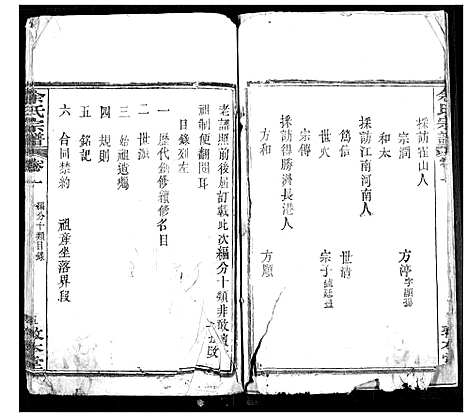 余氏宗譜
採訪崔山人
宗潤
方淳
採訪江南河南人
和太
篤信
世清
宗傳
宗子
採訪得勝洲長港人
方和
方順
老譜照前後屆訂載此次編分十類非敢
祖制便翻閱耳
目錄列左
一 歷代創修續修名目
二 世派
三 始祖遺囑
四 規則
五 銘記
六 合同禁約
祖産坐落界段
余氏宗譜
卷一
編分十類目錄
敦本堂